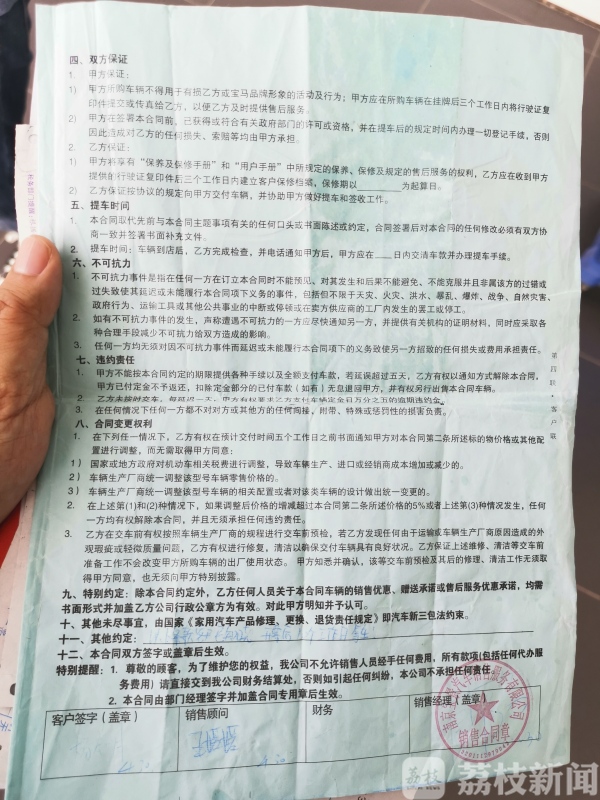 四、双方保证
1. 甲方保证：
1) 甲方所购车辆不得用于有损乙方或宝马品牌形象的活动及行为；甲方应在所购车辆在挂牌后三个工作日内将行驶证复
印件提交或传真给乙方，以便乙方及时提供售后服务。
2) 甲方在签署本合同前，已获得或符合有关政府部门的许可或资格，并在提车后的规定时间内办理一切登记手续，否则
因此造成对乙方的任何损失、索赔等均由甲方承担。
2. 乙方保证：
1) 甲方将享有“保养及保修手册”和“用户手册”中所规定的保养、保修及规定的售后服务的权利，乙方应在收到甲方
提供的行驶证复印件后三个工作日内建立客户保修档案，保修期以______为起算日。
2) 乙方保证按协议的规定向甲方交付车辆，并协助甲方做好提车和签收工作。
五、提车时间
1. 本合同取代先前与本合同主题事项有关的任何口头或书面陈述或约定，合同签署后对本合同的任何修改必须有双方协
商一致并签署书面补充文件。
2. 提车时间：车辆到店后，乙方完成检查，并电话通知甲方后，甲方应在____日内交清车款并办理提车手续。
六、不可抗力
1. 不可抗力事件是指在任何一方在订立本合同时不能预见、对其发生和后果不能避免、不能克服并且非属该方的过错或
过失致使其延迟或未能履行本合同项下义务的事件，包括但不限于天灾、火灾、洪水、暴乱、爆炸、战争、自然灾害、
政府行为、运输工具或其他公共事业的中断或停顿或在卖方供应商的工厂内发生的罢工或停工。
2. 如有不可抗力事件的发生，声称遭遇不可抗力的一方应尽快通知另一方，并提供有关机构的证明材料，同时应采取各
种合理手段减少不可抗力给双方造成的影响。
3. 任何一方均无须对因不可抗力事件而延迟或未能履行本合同项下的义务致使另一方招致的任何损失或费用承担责任。
七、违约责任
1. 甲方不能按本合同约定的期限提供各种手续以及全额支付车款，若延误超过五天，乙方有权以通知方式解除本合同，
甲方已付定金不予返还，扣除定金部分的已付车款（如有）无息退回甲方，并有权另行出售本合同车辆。
3. 在任何情况下任何一方都不对对方或其他方的任何间接，附带、特殊或惩罚性的损害负责。
八、合同变更权利
1. 在下列任一情况下，乙方有权在预计交付时间五个工作日之前书面通知甲方对本合同第二条所述标的物价格或其他配
置进行调整，而无需取得甲方同意：
1) 国家或地方政府对机动车相关税费进行调整，导致车辆生产、进口或经销商成本增加或减少的。
2) 车辆生产厂商统一调整该型号车辆零售价格的。
3) 车辆生产厂商统一调整该型号车辆的相关配置或者对该类车辆的设计做出统一变更的。
2. 在上述第(1)和(2)种情况下，如果调整后价格的增减超过本合同第二条所述价格的5%或者上述第(3)种情况发生，任何
一方均有权解除本合同，并且无须承担任何违约责任。
3. 乙方在交车前有权按照车辆生产厂商的规程进行交车前预检，若乙方发现任何由于运输或车辆生产厂商原因造成的外
观瑕疵或轻微质量问题，乙方有权进行修复，清洁以确保交付车辆具有良好状况。乙方保证上述维修、清洁等交车前
准备工作不会改变甲方所购车辆的出厂使用状态。 甲方知悉并确认，该等交车前预检及其后的修理、清洁工作无须取
得甲方同意，也无须向甲方特别披露。
九、特别约定：除本合同约定外，乙方任何人员关于本合同车辆的销售优惠，赠送承诺或售后服务优惠承诺，均需
书面形式并加盖乙方公司行政公章方为有效。对此甲方明知并予认可。
十、其他未尽事宜，由国家《家用汽车产品修理、更换、退货责任规定》即汽车新三包法约束。
十一、其他约定：
十二、本合同双方签字或盖章后生效。
特别提醒：1. 尊敬的顾客，为了维护您的权益，我公司不允许销售人员经手任何费用，所有款项(包括任何代办服
务费用）请直接交到我公司财务结算处，否则如引起任何纠纷，本公司不承担任何责任。
2. 本合同由部门经理签字并加盖合同专用章后生效。
客户签字（盖章） 销售顾问 财务 销售经理（盖章）
销售合同章
第四联：客户联
荔枝 荔枝新闻